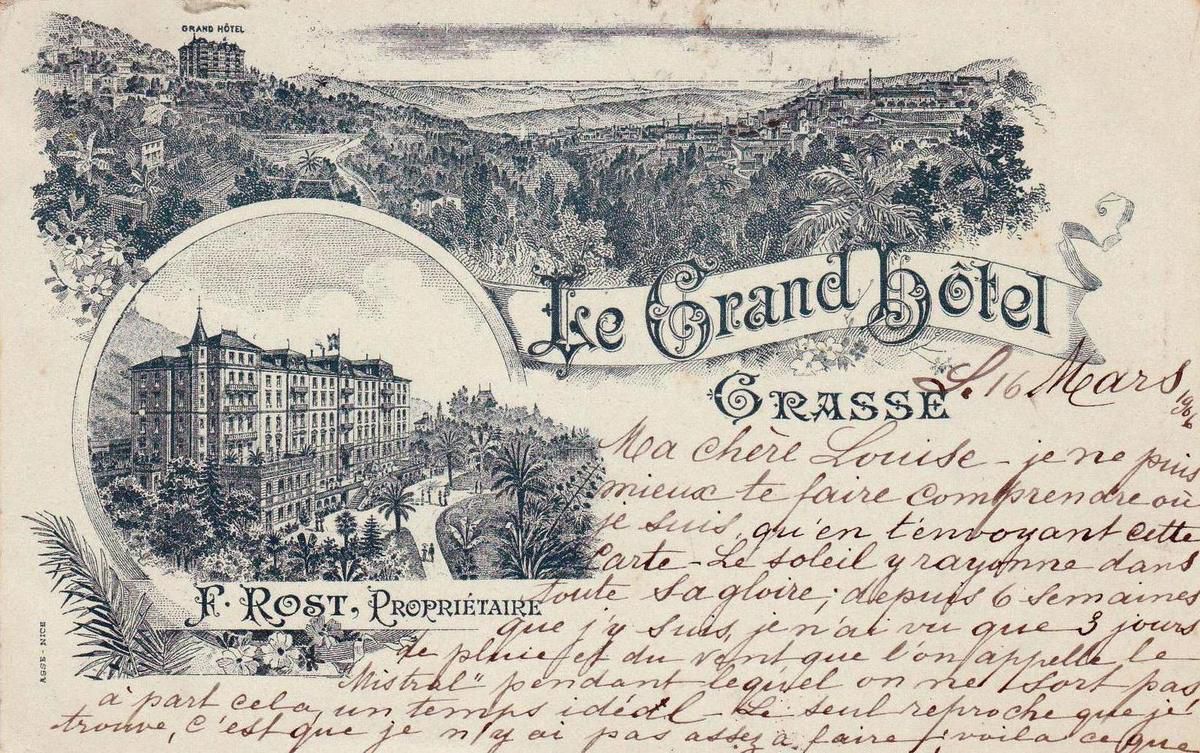 GRAND HÔTEL
Le Grand Hôtel
GRASSE
F. ROST, PROPRIÉTAIRE
ASSE - NICE
16 Mars
Ma chère Louise - je ne puis
mieux te faire comprendre où
je suis, qu'en t'envoyant cette
Carte - Le soleil y rayonne dans
toute sa gloire; depuis 6 semaines
que j'y suis, je n'ai vu que 3 jours
de pluie et du vent que l'on appelle le
Mistral" pendant lequel on ne sort pas
à part cela un temps idéal Le seul reproche que je
trouve, c'est que je n'y ai pas assez à faire; voilà ce que